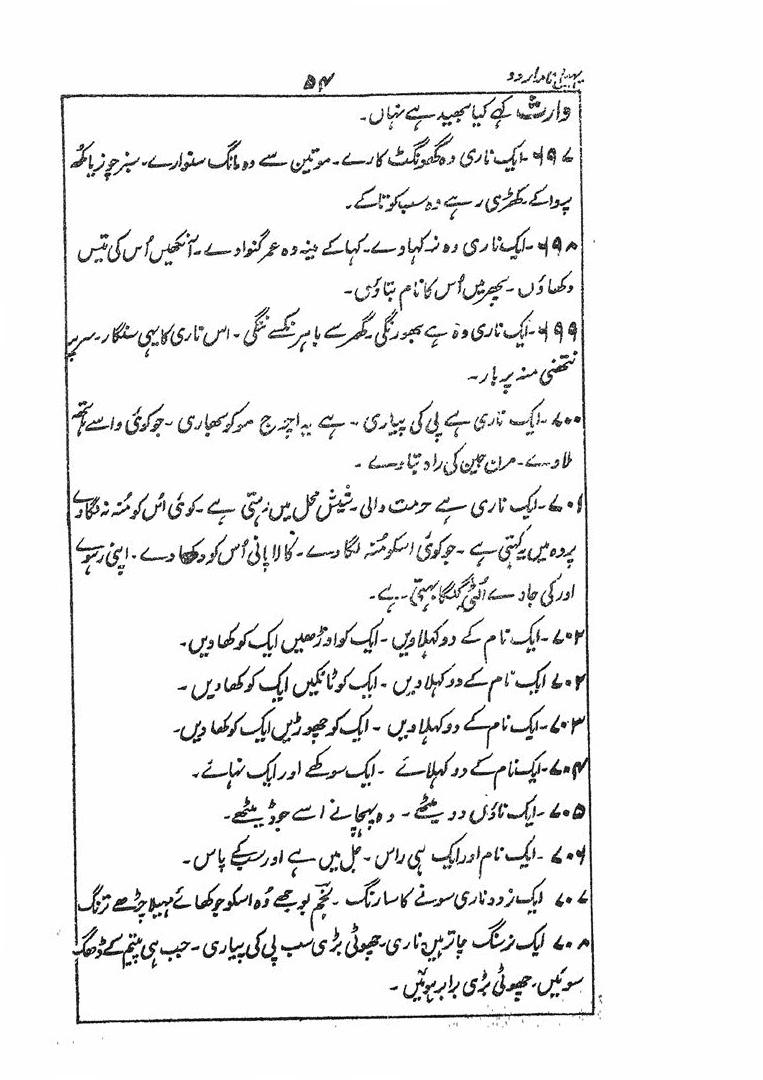 پہیلی نامہ اردو
۵۴
وارث کہے کیا بھید ہے نہاں۔
۶۹۷۔ ایک ناری وہ گھونگٹ کارے۔ موتین سے وہ مانگ سنوارے۔ سبز چوز یاکھ
پروا کے۔ کھڑی رہے وہ سب کو تاکے۔
۶۹۸۔ ایک ناری وہ نر کہاوے۔ کہا کے مینہ وہ عمر گنوادے۔ آنکھیں اُس کی تیس
دکھاؤں۔ پھر میں اُس کا نام بتاؤں۔
۶۹۹۔ ایک ناری وہ ہے بھورنگی۔ گھر سے باہر نکسے ننگی۔ اس ناری کا یہی سنگار۔ سر پر
نتھنی منہ پر بار۔
۷۰۰۔ ایک ناری ہے پی کی پیاری۔ ہے یہ اچنرج موکو بھاری۔ جو کوئی واسے ہتھ
لاوے۔ مرن جین کی راہ بتاوے۔
۷۰۱۔ ایک ناری ہے حرمت والی۔ شیش محل میں رہتی ہے۔ کوئی اُس کو مُنہ نہ لگاوے
پردہ میں یہ کہتی ہے۔ جو کوئی اسکو مُنہ لگادے۔ کالا پانی اُس کو دکھادے۔ اپنی رہوے
اور کی جادے اُلٹی گنگا بہتی ہے۔
۷۰۲۔ ایک نام کے دو کہلاویں۔ ایک کو اوڑھیں ایک کو کھاویں۔
۷۰۲ ایک نام کے دو کہلاویں۔ ایک کو ٹانکیں ایک کو کھاویں۔
۷۰۳۔ ایک نام کے دو کہلاویں۔ ایک کو چھوڑیں ایک کو کھاویں۔
۷۰۴۔ ایک نام کے دو کہلائے۔ ایک سوکھے اور ایک نہائے۔
۷۰۵۔ ایک ناؤں دو میٹھے۔ وہ پہچانے اسے جو ڈیٹھے۔
۷۰۶۔ ایک نام اور ایک ہی راس۔ جل میں ہے اور سب کے پاس۔
۷۰۷ ایک زرد ناری سونے کا سا رنگ۔ پنچم بوجھے وُہ اسکو جو کھائے پہیلا چڑھے ترنگ
۷۰۸ ایک نرسنگ چاتر ہیں ناری۔ چھوٹی بڑی سب پی کی پیاری۔ جب ہی پیتم کے ڈھگ
سوئیں۔ چھوٹی بڑی برابر ہوئیں۔